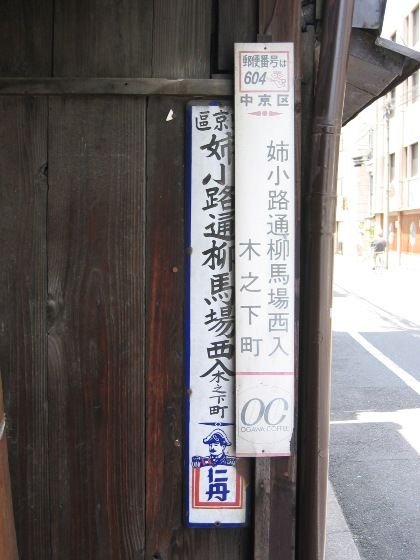 郵便番号は
604
中京区
姉小路通柳馬場西入
木之下町
OC
OGAWA COFFEE
京區
姉小路通柳馬場西入木之下町
仁丹